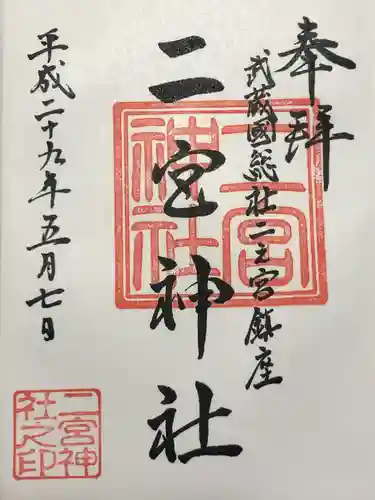 奉拝
武蔵國総社二之宮鎮座
二宮神社
平成二十九年五月七日
二宮
神社
二宮神
社之印